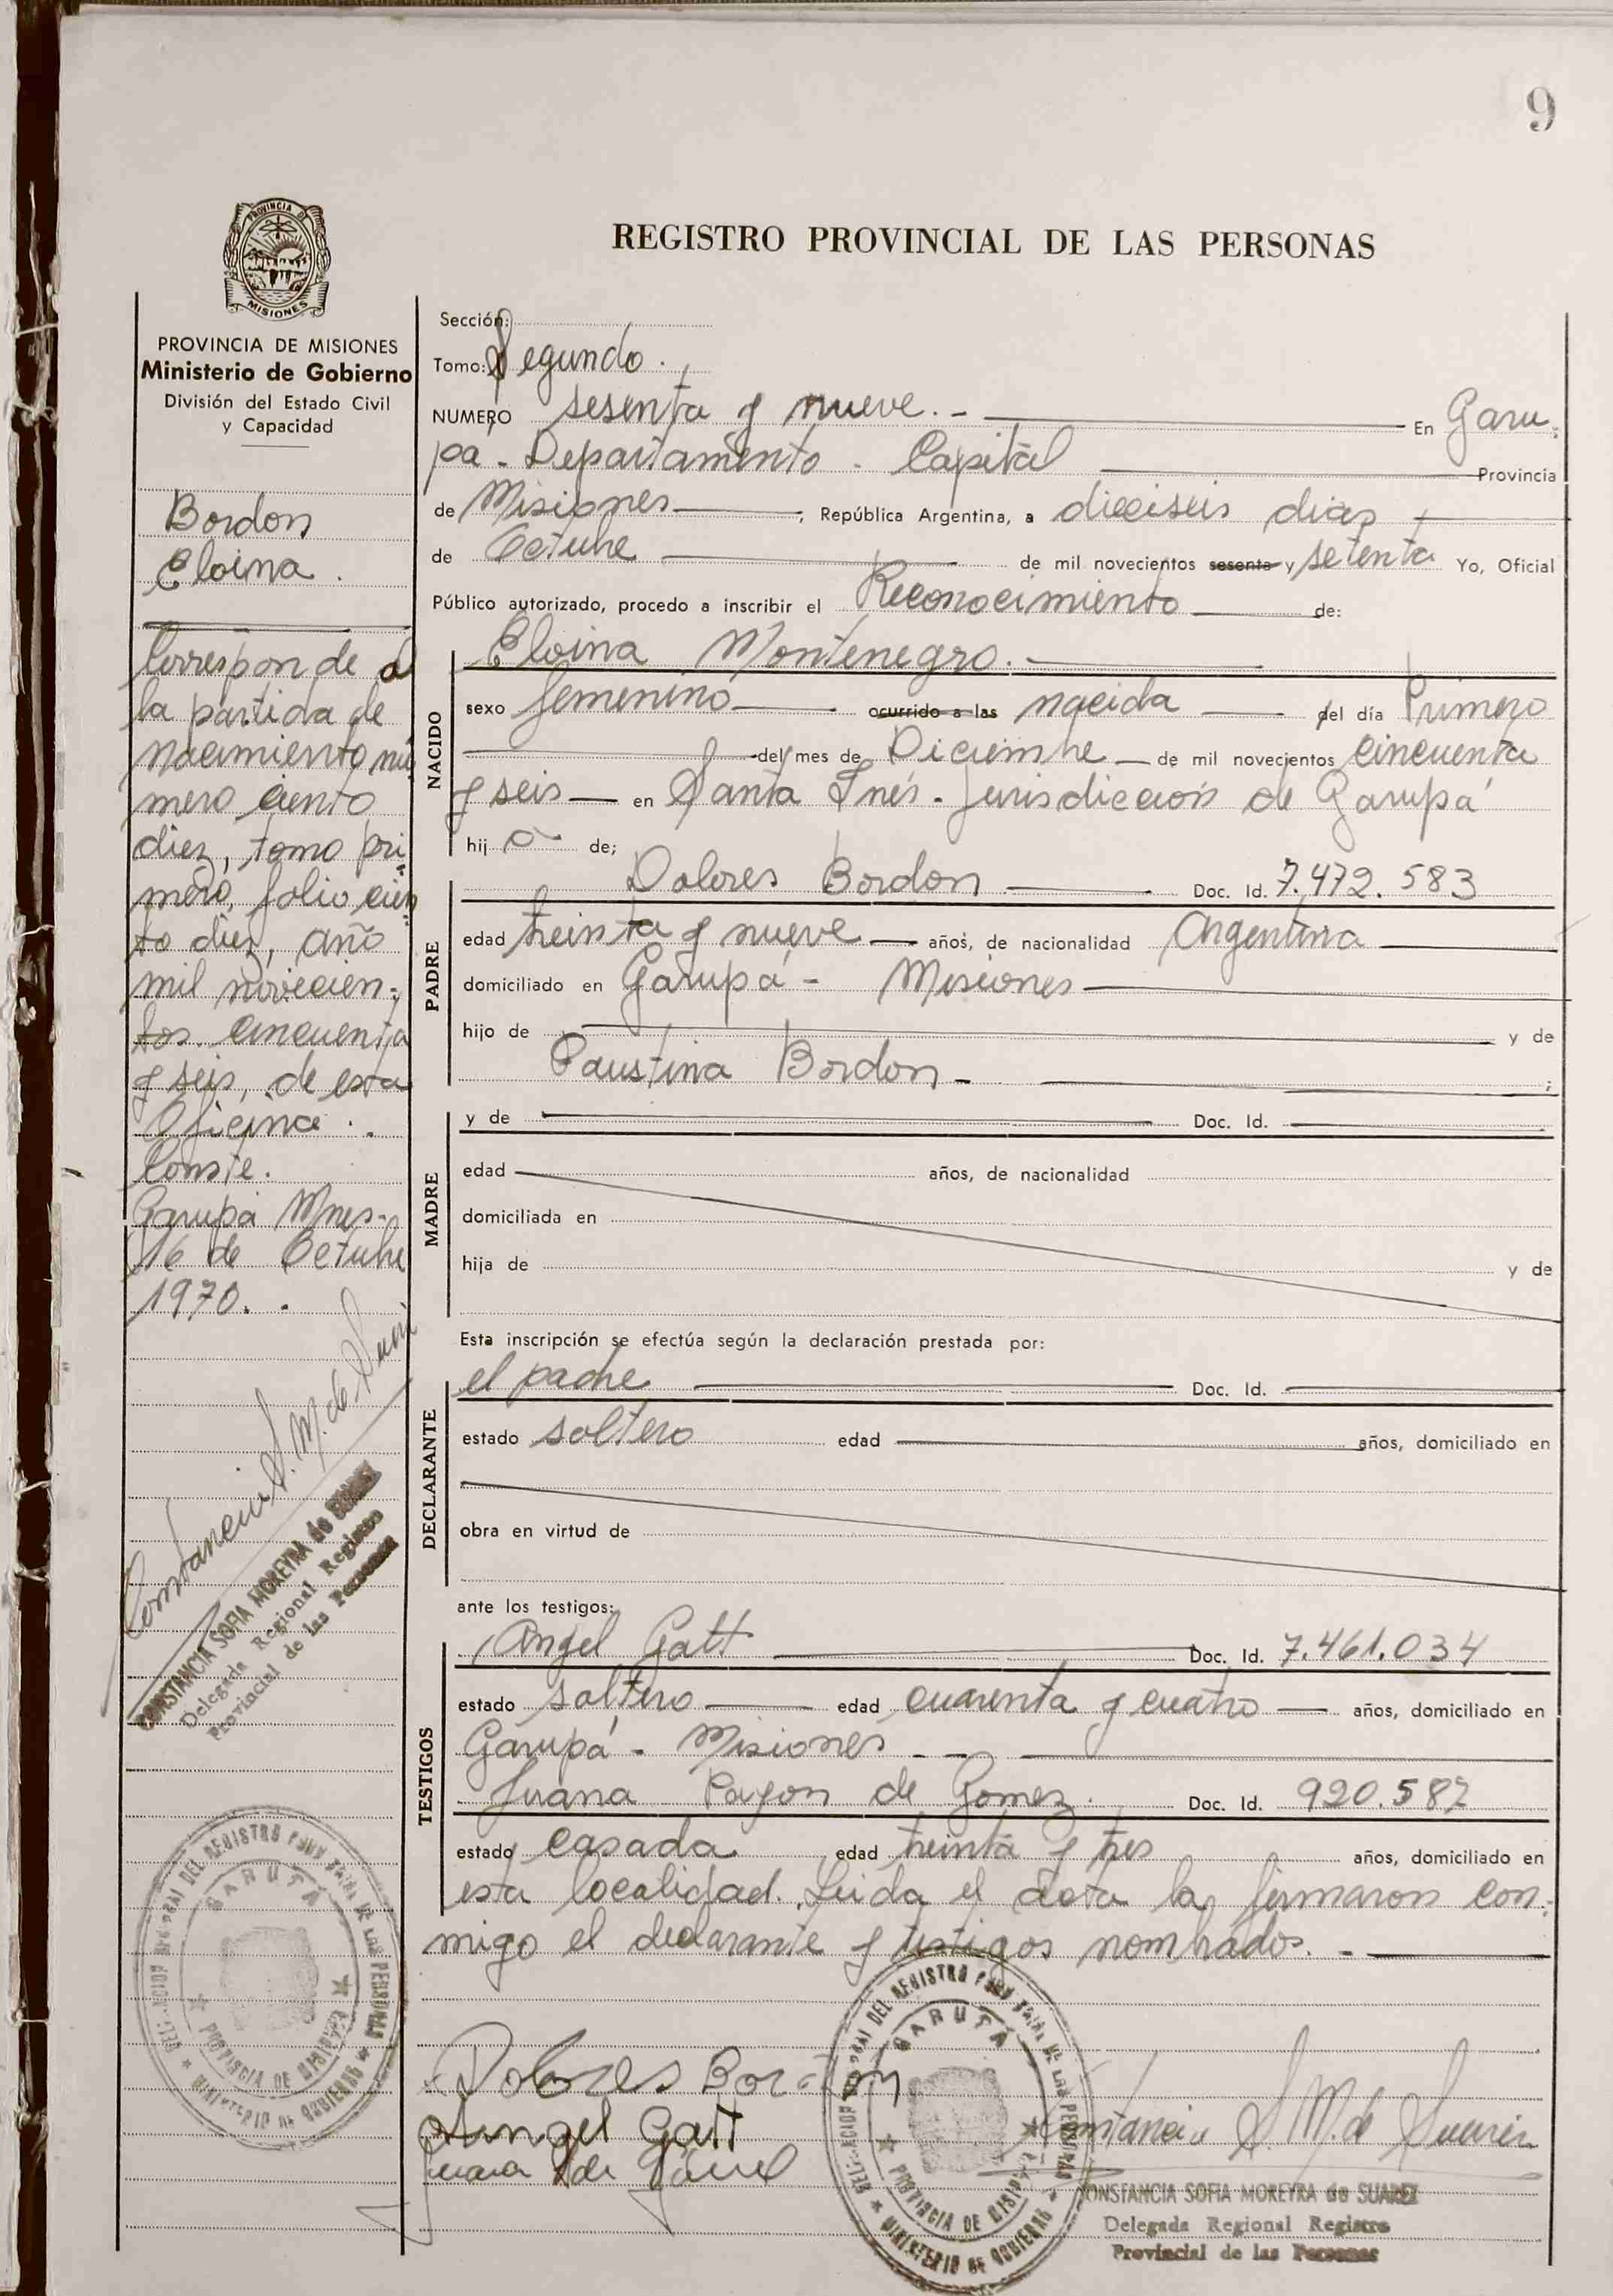 9
PROVINCIA DE
MISIONES
REGISTRO PROVINCIAL DE LAS PERSONAS
PROVINCIA DE MISIONES
Ministerio de Gobierno
División del Estado Civil
y Capacidad
Bordon
Eloina.
Corresponde a
la partida de
nacimiento nú
mero ciento
diez, tomo pri
mero, folio cien
to diez, año
mil novecien-
tos cincuenta
y seis, de esta
Oficina.
Conste.
Garupá Mnes-
16 de Octubre
1970.
Constancia S. M. de
CONSTANCIA SOFIA MOREYRA de SUAREZ
Delegada Regional Registro
Provincial de las Personas
GARUPA
PROVINCIA DE MISIONES
MINISTERIO DE GOBIERNO
Sección:
Tomo: Segundo.
NUMERO sesenta y nueve. - En Garu-
pá - Departamento - Capital Provincia
de Misiones, República Argentina, a dieciseis dias
de Octubre de mil novecientos sesenta y setenta Yo, Oficial
Público autorizado, procedo a inscribir el Reconocimiento de:
Eloina Montenegro. -
NACIDO
sexo femenino ocurrido a las nacida del día Primero
del mes de Diciembre de mil novecientos cincuenta
y seis en Santa Inés - jurisdiccion de Garupá
hij a de;
PADRE
Dolores Bordon Doc. Id. 7.472.583
edad treinta y nueve años, de nacionalidad Argentina
domiciliado en Garupá - Misiones
hijo de y de
Faustina Bordon -
MADRE
y de Doc. Id.
edad años, de nacionalidad
domiciliada en
hija de y de
Esta inscripción se efectúa según la declaración prestada por:
DECLARANTE
el padre Doc. Id.
estado soltero edad años, domiciliado en
obra en virtud de
ante los testigos:
TESTIGOS
Angel Gatt Doc. Id. 7.461.034
estado soltero edad cuarenta y cuatro años, domiciliado en
Garupá - Misiones
Juana de Gomez. Doc. Id. 920.587
estado casada edad treinta y tres años, domiciliado en
esta localidad. Leida el acta la firmaron con-
migo el declarante y testigos nombrados. -
Dolores Bordon
Angel Gatt
Constancia S. M. de
GARUPA
PROVINCIA DE MISIONES
MINISTERIO DE GOBIERNO
CONSTANCIA SOFIA MOREYRA de SUAREZ
Delegada Regional Registro
Provincial de las Personas